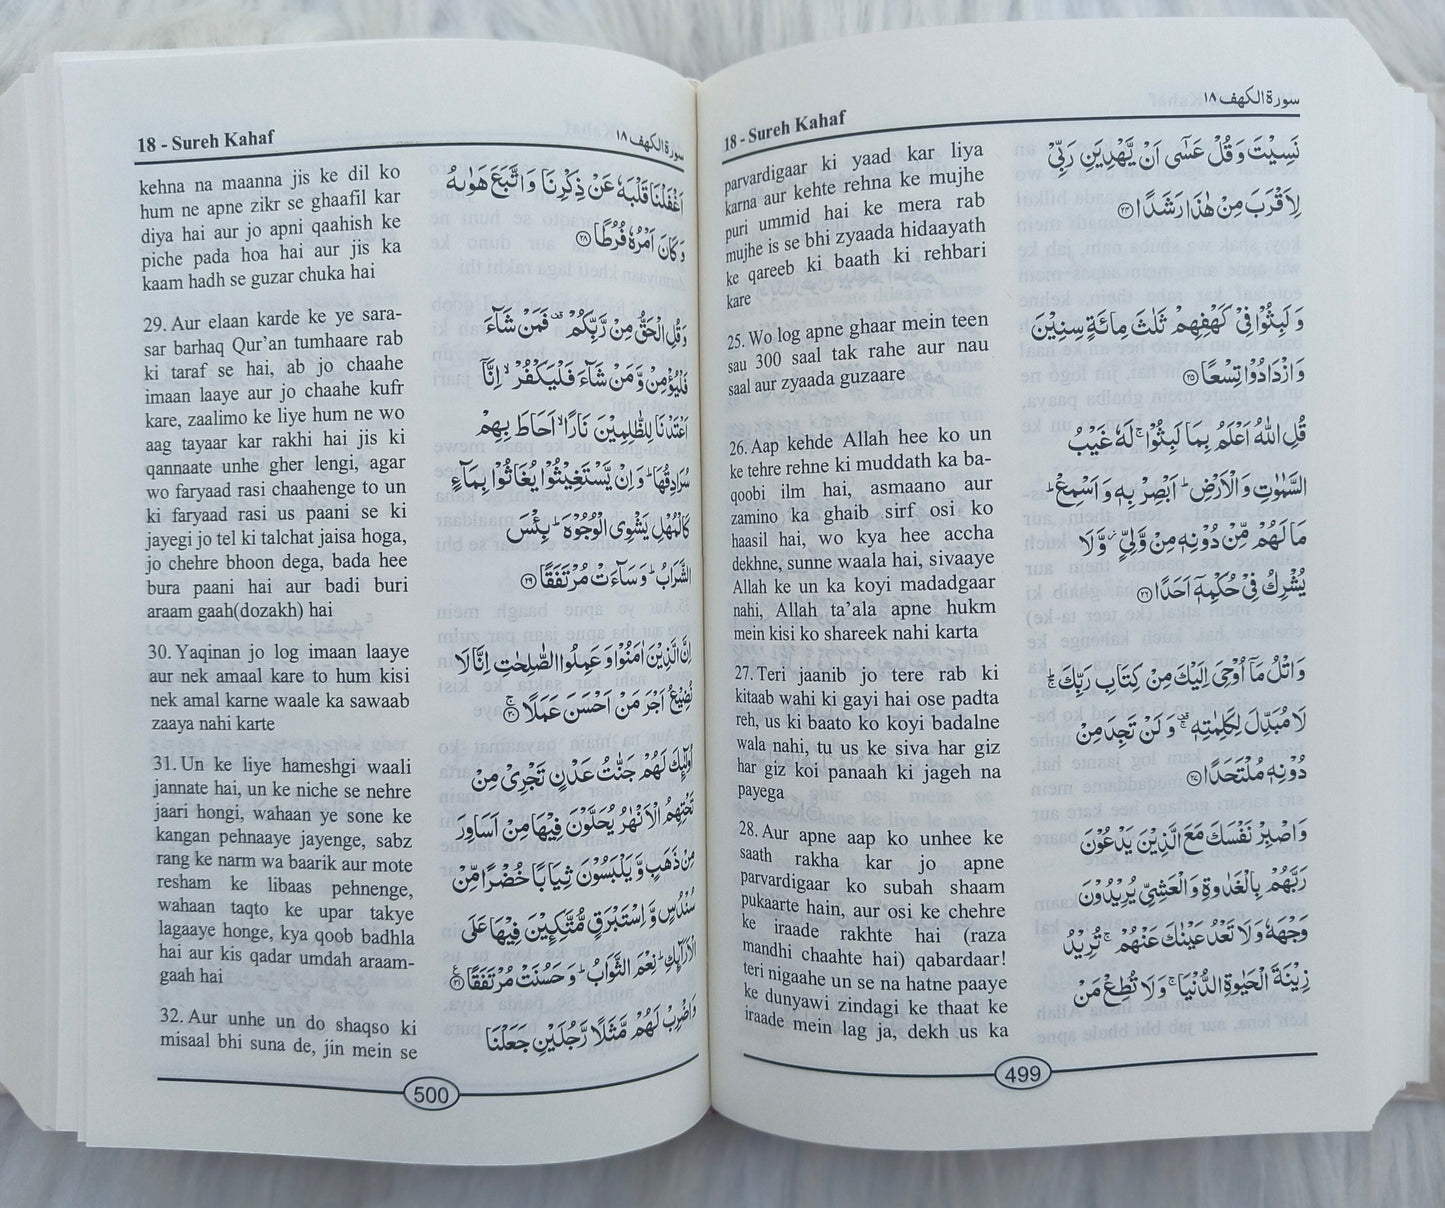 18 - Sureh Kahaf
سورة الكهف ١٨
parvardigaar ki yaad kar liya
karna aur kehte rehna ke mujhe
puri ummid hai ke mera rab
mujhe is se bhi zyaada hidaayath
ke qareeb ki baath ki rehbari
kare
25. Wo log apne ghaar mein teen
sau 300 saal tak rahe aur nau
saal aur zyaada guzaare
26. Aap kehde Allah hee ko un
ke tehre rehne ki muddath ka ba-
qoobi ilm hai, asmaano aur
zamino ka ghaib sirf osi ko
haasil hai, wo kya hee accha
dekhne, sunne waala hai, sivaaye
Allah ke un ka koyi madadgaar
nahi, Allah ta’ala apne hukm
mein kisi ko shareek nahi karta
27. Teri jaanib jo tere rab ki
kitaab wahi ki gayi hai ose padta
reh, us ki baato ko koyi badalne
wala nahi, tu us ke siva har giz
har giz koi panaah ki jageh na
payega
28. Aur apne aap ko unhee ke
saath rakha kar jo apne
parvardigaar ko subah shaam
pukaarte hain, aur osi ke chehre
ke iraade rakhte hai (raza
mandhi chaahte hai) qabardaar!
teri nigaahe un se na hatne paaye
ke dunyawi zindagi ke thaat ke
iraade mein lag ja, dekh us ka
نَسِيْتَ وَقُلْ عَسٰٓى اَنْ يَّهْدِيَنِ رَبِّيْ
لِاَقْرَبَ مِنْ هٰذَا رَشَدًا ﴿٢٤﴾
وَلَبِثُوْا فِيْ كَهْفِهِمْ ثَلٰثَ مِائَةٍ سِنِيْنَ
وَازْدَادُوْا تِسْعًا ﴿٢٥﴾
قُلِ اللّٰهُ اَعْلَمُ بِمَا لَبِثُوْا ۚ لَهٗ غَيْبُ
السَّمٰوٰتِ وَالْاَرْضِ ۭ اَبْصِرْ بِهٖ وَاَسْمِعْ ۭ
مَا لَهُمْ مِّنْ دُوْنِهٖ مِنْ وَّلِيٍّ ۡ وَّلَا
يُشْرِكُ فِيْ حُكْمِهٖٓ اَحَدًا ﴿٢٦﴾
وَاتْلُ مَآ اُوْحِيَ اِلَيْكَ مِنْ كِتَابِ رَبِّكَ ۚ
لَا مُبَدِّلَ لِكَلِمٰتِهٖ ۚ وَلَنْ تَجِدَ مِنْ
دُوْنِهٖ مُلْتَحَدًا ﴿٢٧﴾
وَاصْبِرْ نَفْسَكَ مَعَ الَّذِيْنَ يَدْعُوْنَ
رَبَّهُمْ بِالْغَدٰوةِ وَالْعَشِيِّ يُرِيْدُوْنَ
وَجْهَهٗ وَلَا تَعْدُ عَيْنٰكَ عَنْهُمْ ۚ تُرِيْدُ
زِيْنَةَ الْحَيٰوةِ الدُّنْيَا ۚ وَلَا تُطِعْ مَنْ
499
18 - Sureh Kahaf
سورة الكهف ١٨
kehna na maanna jis ke dil ko
hum ne apne zikr se ghaafil kar
diya hai aur jo apni qaahish ke
piche pada hoa hai aur jis ka
kaam hadh se guzar chuka hai
29. Aur elaan karde ke ye sara-
sar barhaq Qur’an tumhaare rab
ki taraf se hai, ab jo chaahe
imaan laaye aur jo chaahe kufr
kare, zaalimo ke liye hum ne wo
aag tayaar kar rakhi hai jis ki
qannaate unhe gher lengi, agar
wo faryaad rasi chaahenge to un
ki faryaad rasi us paani se ki
jayegi jo tel ki talchat jaisa hoga,
jo chehre bhoon dega, bada hee
bura paani hai aur badi buri
araam gaah(dozakh) hai
30. Yaqinan jo log imaan laaye
aur nek amaal kare to hum kisi
nek amal karne waale ka sawaab
zaaya nahi karte
31. Un ke liye hameshgi waali
jannate hai, un ke niche se nehre
jaari hongi, wahaan ye sone ke
kangan pehnaaye jayenge, sabz
rang ke narm wa baarik aur mote
resham ke libaas pehnenge,
wahaan taqto ke upar takye
lagaaye honge, kya qoob badhla
hai aur kis qadar umdah araam-
gaah hai
32. Aur unhe un do shaqso ki
misaal bhi suna de, jin mein se
اَغْفَلْنَا قَلْبَهٗ عَنْ ذِكْرِنَا وَاتَّبَعَ هَوٰىهُ
وَكَانَ اَمْرُهٗ فُرُطًا ﴿٢٨﴾
وَقُلِ الْحَقُّ مِنْ رَّبِّكُمْ ۣ فَمَنْ شَآءَ
فَلْيُؤْمِنْ وَّمَنْ شَآءَ فَلْيَكْفُرْ ۙ اِنَّآ
اَعْتَدْنَا لِلظّٰلِمِيْنَ نَارًا ۙ اَحَاطَ بِهِمْ
سُرَادِقُهَا ۭ وَاِنْ يَّسْتَغِيْثُوْا يُغَاثُوْا بِمَآءٍ
كَالْمُهْلِ يَشْوِي الْوُجُوْهَ ۭ بِئْسَ
الشَّرَابُ ۭ وَسَآءَتْ مُرْتَفَقًا ﴿٢٩﴾
اِنَّ الَّذِيْنَ اٰمَنُوْا وَعَمِلُوا الصّٰلِحٰتِ اِنَّا لَا
نُضِيْعُ اَجْرَ مَنْ اَحْسَنَ عَمَلًا ﴿٣٠﴾ ۚ
اُولٰٓئِكَ لَهُمْ جَنّٰتُ عَدْنٍ تَجْرِيْ مِنْ
تَحْتِهِمُ الْاَنْهٰرُ يُحَلَّوْنَ فِيْهَا مِنْ اَسَاوِرَ
مِنْ ذَهَبٍ وَّيَلْبَسُوْنَ ثِيَابًا خُضْرًا مِّنْ
سُنْدُسٍ وَّاِسْتَبْرَقٍ مُّتَّكِـِٕيْنَ فِيْهَا عَلَى
الْاَرَآئِكِ ۭ نِعْمَ الثَّوَابُ ۭ وَحَسُنَتْ مُرْتَفَقًا ﴿٣١﴾
وَاضْرِبْ لَهُمْ مَّثَلًا رَّجُلَيْنِ جَعَلْنَا
500